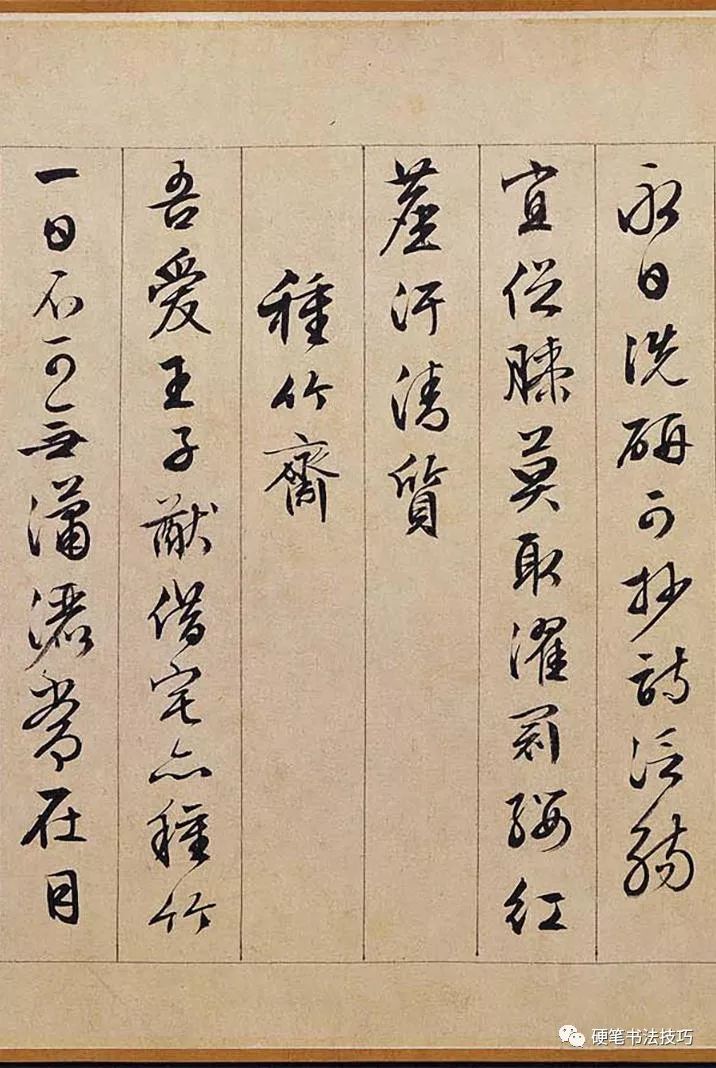 永日洗研可抄詩泛觴
宜促膝莫取濯冠纓紅
塵汗清質
種竹齋
吾愛王子猷借宅亦種竹
一日不可無瀟灑常在目
硬笔书法技巧